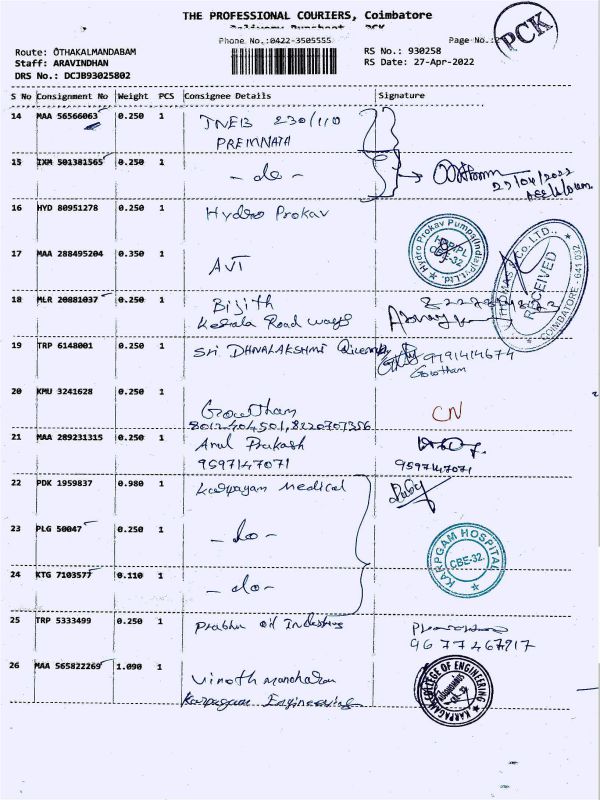 THE PROFESSIONAL COURIERS, Coimbatore
PCK
Phone No.:0422-3505555
Page No.:2
Route: OTHAKALMANDABAM
RS No.: 930258
Staff: ARAVINDHAN
RS Date: 27-Apr-2022
DRS No.: DCJB93025802
S No Consignment No Weight PCS Consignee Details Signature
14 MAA 56566063 0.250 1 TNEB 230/110
PREMNATH
15 IXM 501381565 0.250 1 - do -
27/04/2022
16 HYD 80951278 0.250 1 Hydro Prokav
Hydro Prokav Pumps(India)Pvt.Ltd.
CBE-32
17 MAA 288495204 0.350 1 AVT
RECEIVED
COIMBATORE - 641 032
18 MLR 20881037 0.250 1 Bijith
Kerala Road ways
19 TRP 6148001 0.250 1 SRI DHNALAKSHMI
9191414674
Gowtham
20 KMU 3241628 0.250 1 Gowtham
8012404501,8220707356
CN
21 MAA 289231315 0.250 1 Arul Prakash
9597147071
9597147071
22 PDK 1959837 0.980 1 Karpagam Medical
23 PLG 50047 0.250 1 - do -
KARPGAM HOSPITAL
CBE-32.
24 KTG 7103577 0.110 1 - do -
25 TRP 5333499 0.250 1 Prabhu oil Industries
9677467717
26 MAA 565822269 1.090 1 Vinoth manoharan
Karpagam Engineering
KARPAGAM COLLEGE OF ENGINEERING